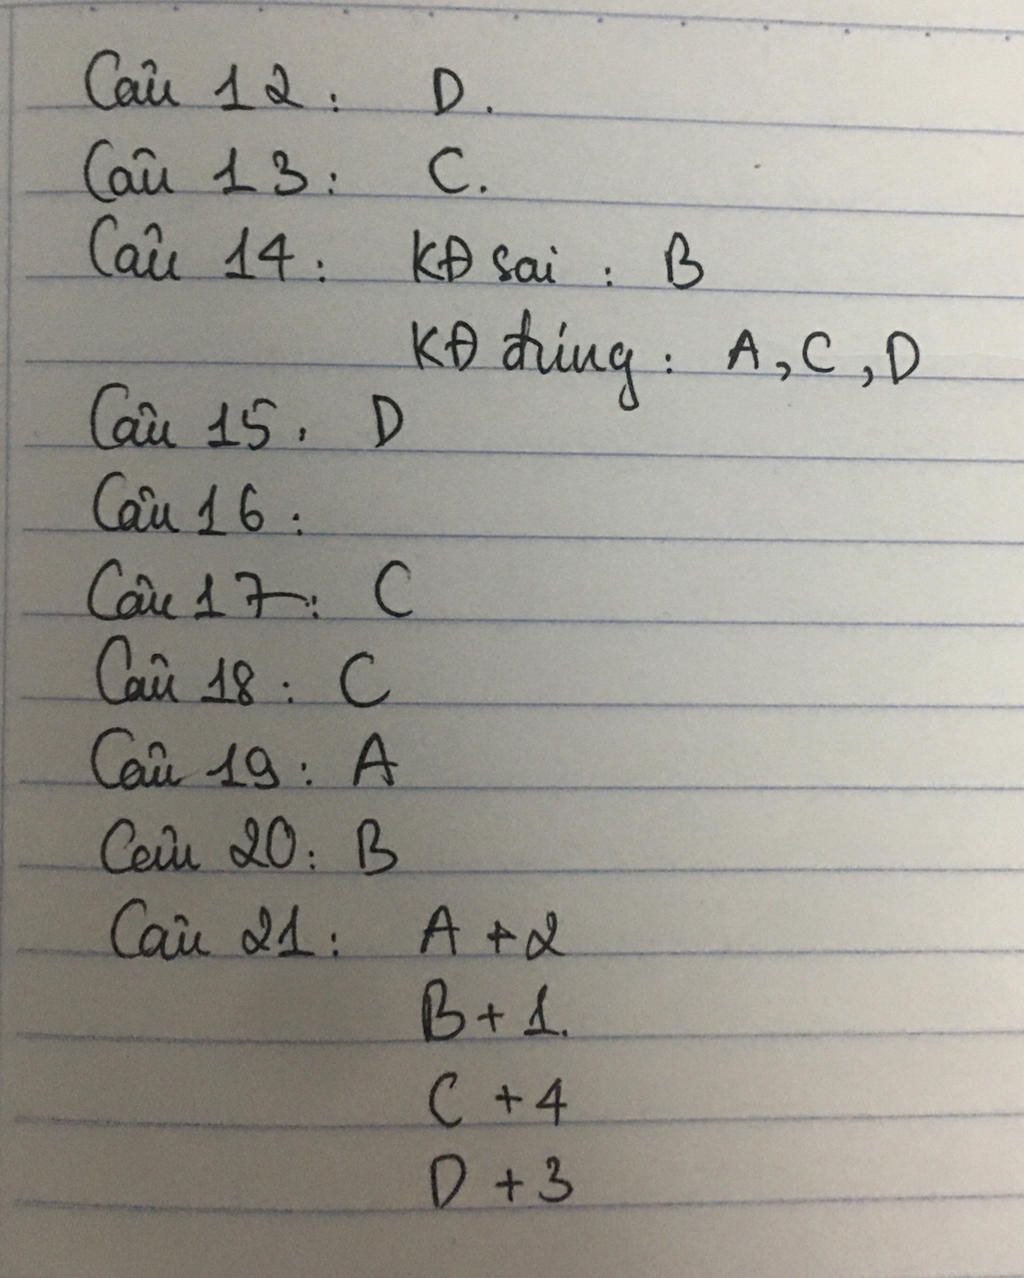 Câu 12: D.
Câu 13: C.
Câu 14: KĐ sai: B
KĐ đúng: A, C, D
Câu 15. D
Câu 16:
Câu 17: C
Câu 18: C
Câu 19: A
Câu 20: B
Câu 21: A + 2
B + 1.
C + 4
D + 3